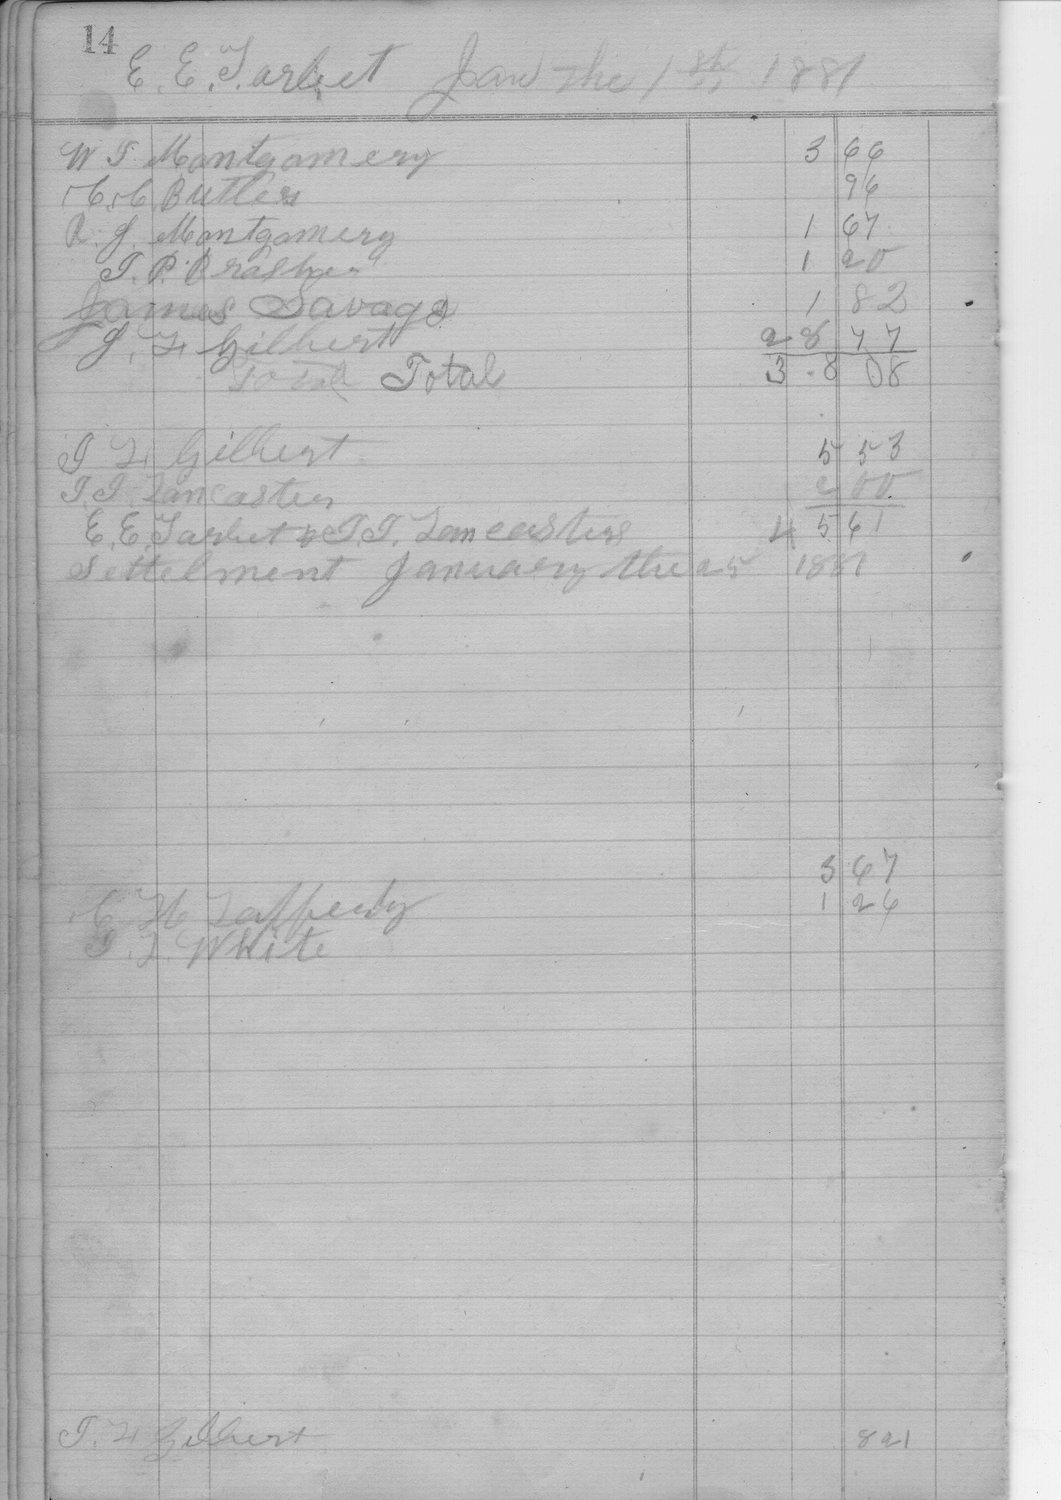 14
E. E. Tarbet Jan the 1 1881
W T Montgomery 3 66
C. C Butler 96
R. J. Montgomery 1 67
T. P. Brasher 1 20
James Savage 1 82
J. F. Gilbert 28 77
Total Total 38 08
T F. Gilbert 5 53
T. T Lancaster 2 00
E. E. Tarbet & T. T. Lancasters 45 61
Settelment January the 25 1881
3 67
C H Lafferty 1 26
T. L. White
T. F Gilbert 8 21